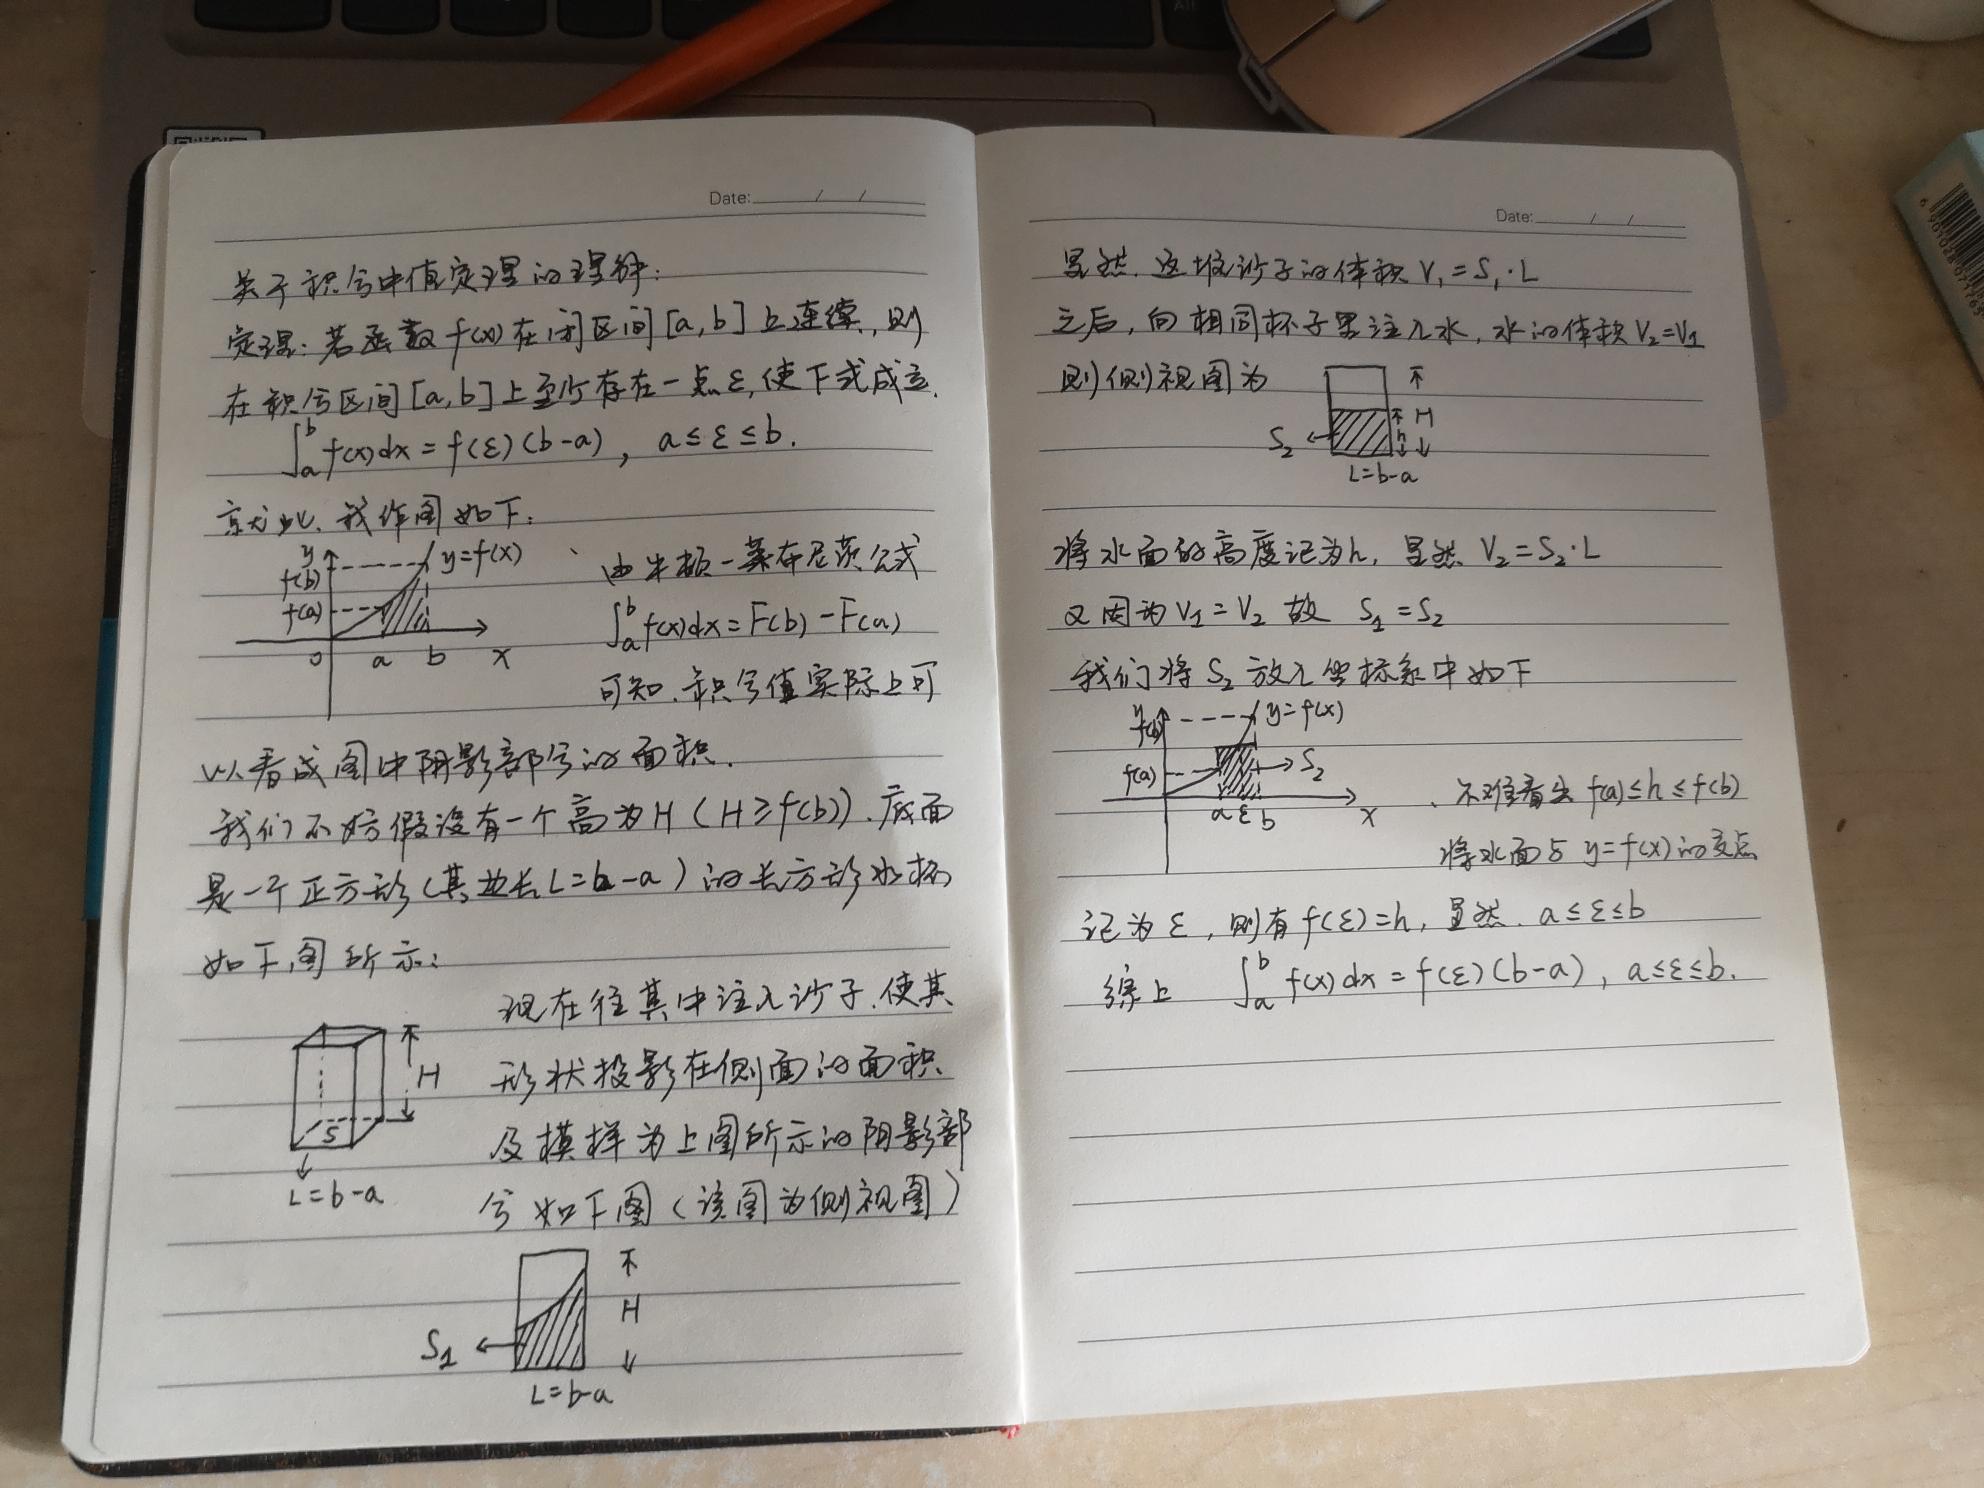 Date: / /
关于积分中值定理的理解：
定理：若函数 f(x) 在闭区间 [a,b] 上连续，则
在积分区间 [a,b] 上至少存在一点 ε，使下式成立．
∫ₐᵇ f(x)dx = f(ε)(b-a)，a≤ε≤b．
我作图如下：
y
f(b)
y=f(x)
f(a)
0 a b x
由牛顿－莱布尼茨公式
∫ₐᵇ f(x)dx = F(b) - F(a)
可知，积分值实际上可
以看成图中阴影部分的面积．
我们不妨假设有一个高为H（H≥f(b)），底面
是一个正方形（其边长L=b-a）的长方形水杯
如下图所示：
现在往其中注入沙子，使其
形状投影在侧面的面积
及模样为上图所示的阴影部
分如下图（该图为侧视图）
H
S
L=b-a
H
S₁
L=b-a
Date: / /
显然，这堆沙子的体积 V₁=S₁·L
之后，向相同杯子里注入水，水的体积 V₂=V₁
则侧视图为
H
h
S₂
L=b-a
将水面的高度记为h，显然 V₂=S₂·L
又因为 V₁=V₂ 故 S₁=S₂
我们将 S₂ 放入坐标系中如下
y
f(b)
y=f(x)
f(a)
S₂
a ε b x
不难看出 f(a)≤h≤f(b)
将水面与 y=f(x) 的交点
记为 ε，则有 f(ε)=h，显然，a≤ε≤b
综上 ∫ₐᵇ f(x)dx = f(ε)(b-a)，a≤ε≤b．